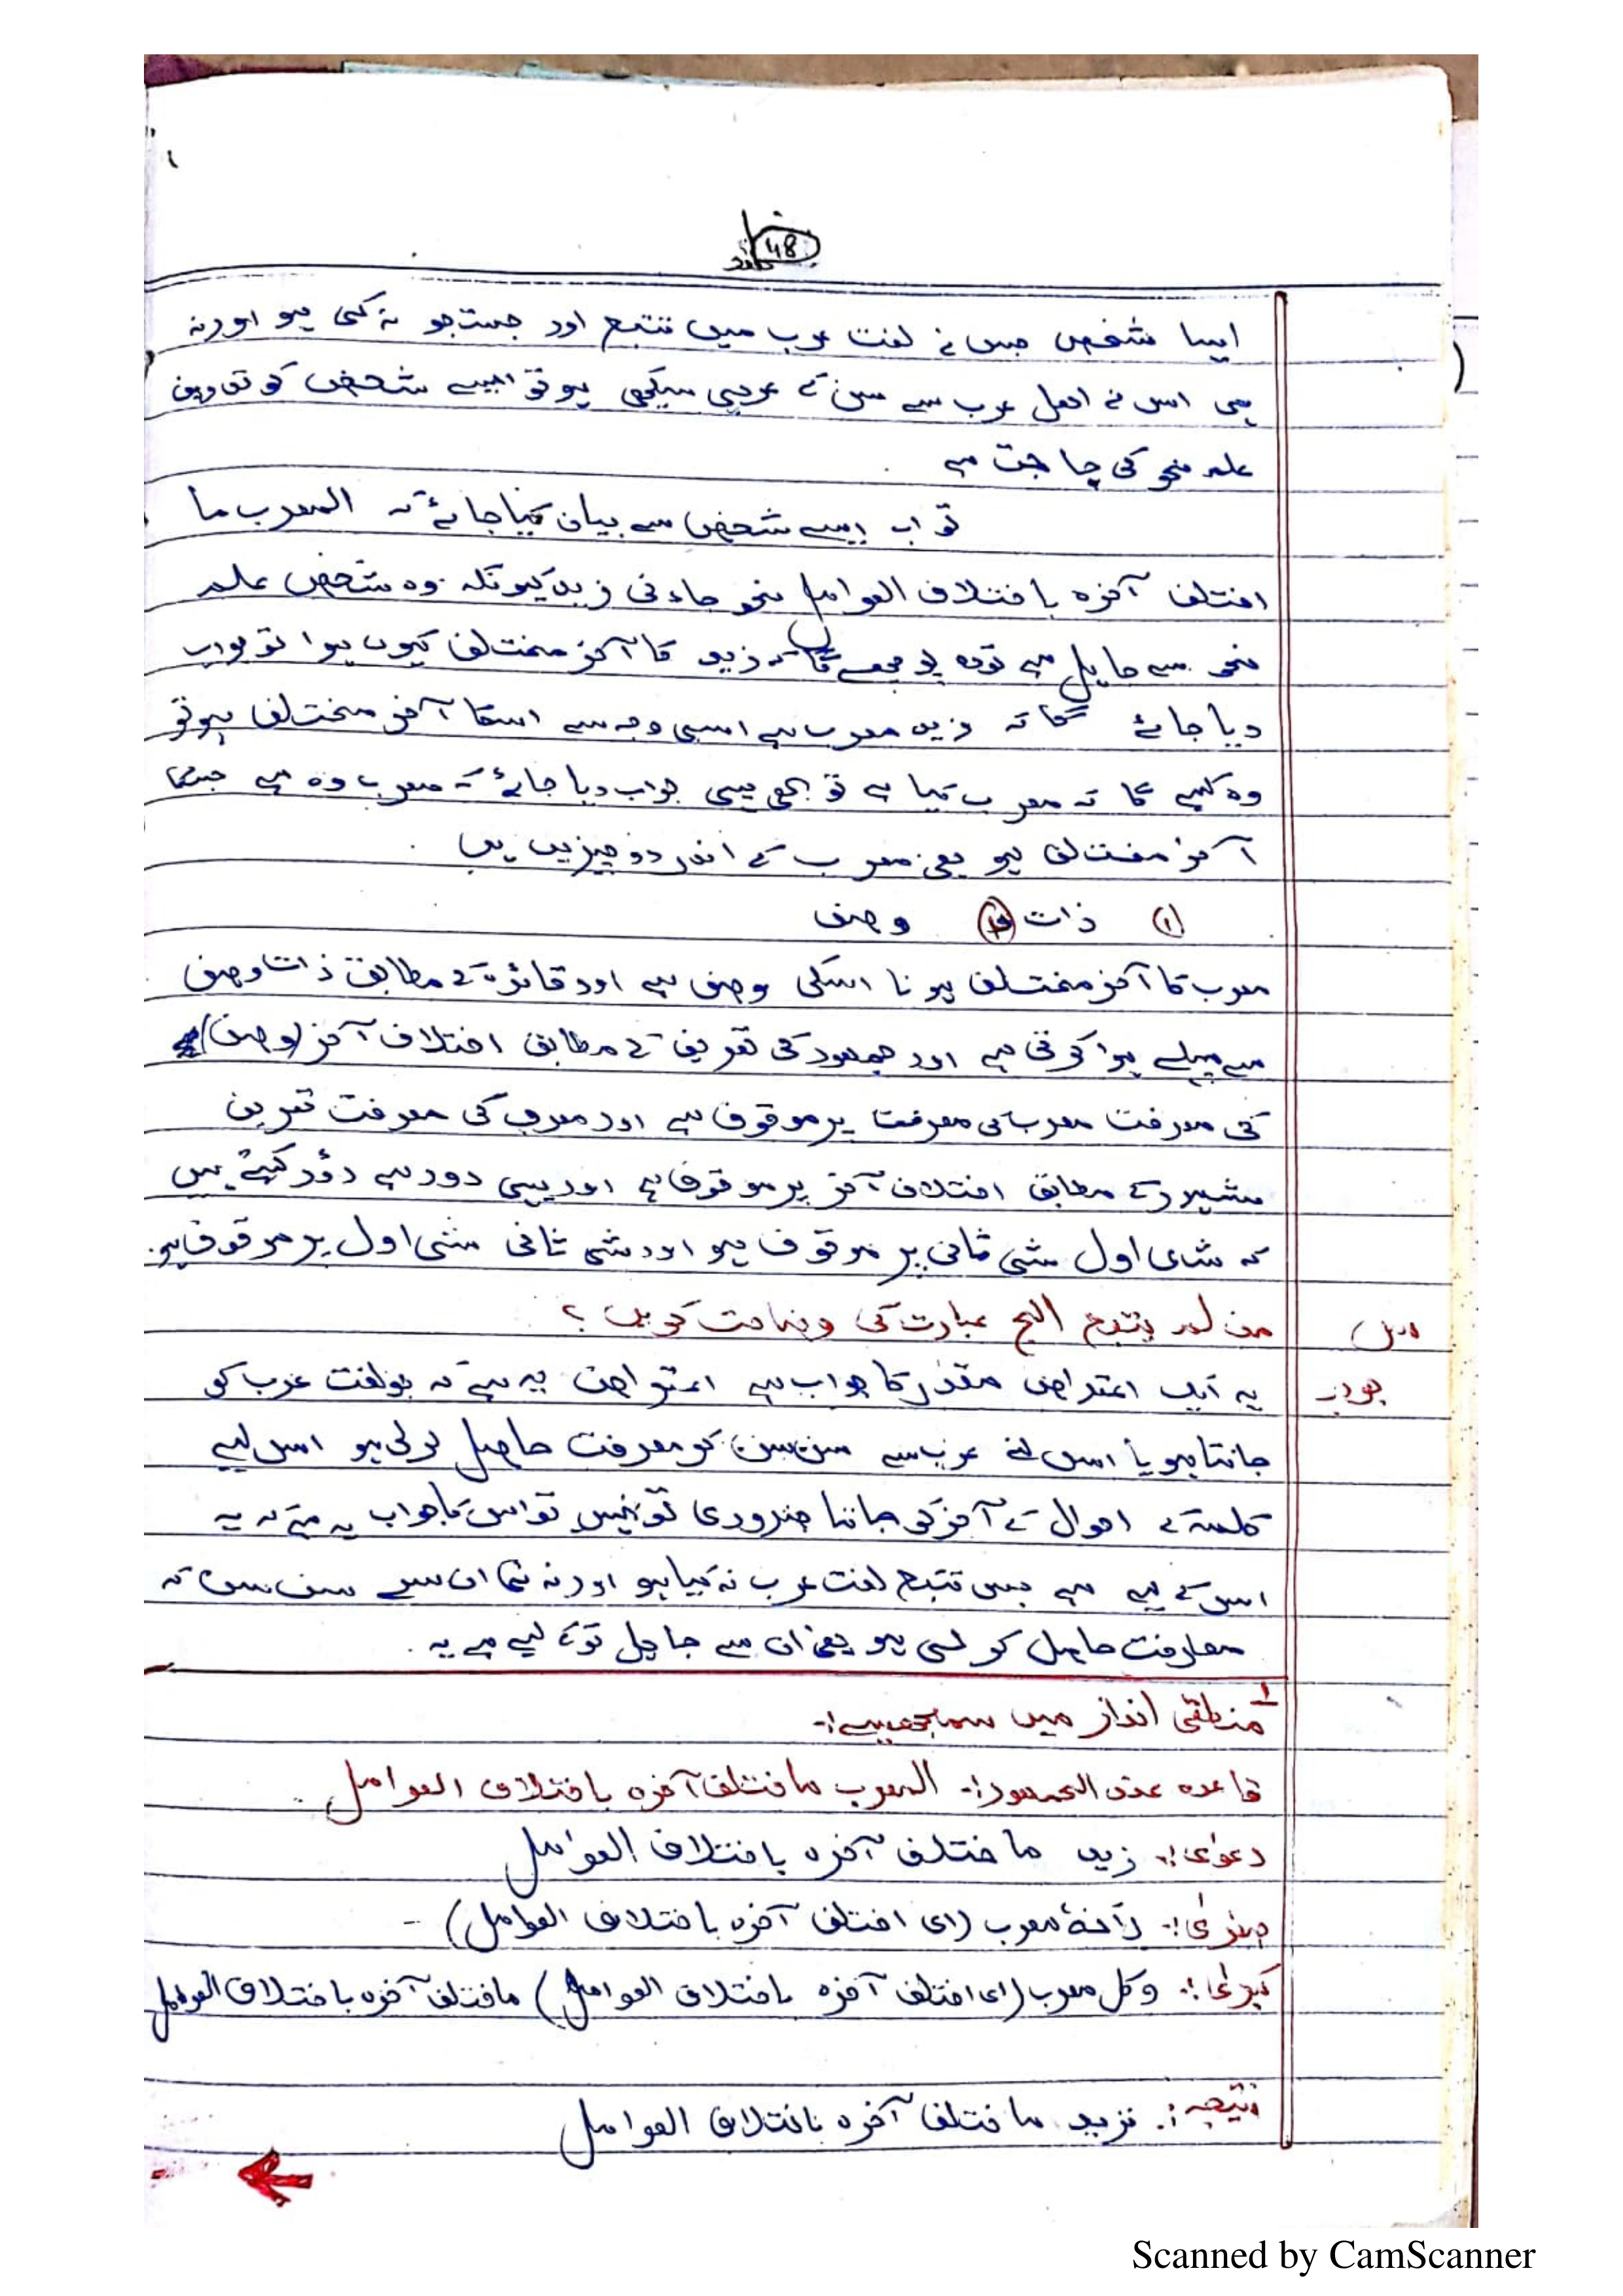 48
ایسا شخص جس نے لغت عرب میں تتبع اور جستجو نہ کی ہو اور نہ
ہی اس نے اھل عرب سے سن کے عربی سیکھی ہو تو ایسے شخص کو تدوین
علم نحو کی حاجت ہے
تو اب ایسے شخص سے بیان کیا جائے کہ المعرب ما
اختلف آخرہ باختلاف العوامل نحو جاءنی زید کیونکہ وہ شخص علم
نحو سے جاہل ہے تو وہ پوچھے گا کہ زید کا آخر مختلف کیوں ہوا تو جواب
دیا جائے گا کہ زید معرب ہے اسی وجہ سے اسکا آخر مختلف ہو تو
وہ کہے گا کہ معرب کیا ہے تو بھی یہی جواب دیا جائے کہ معرب وہ ہے جسکا
آخر مختلف ہو یعنی معرب کے اندر دو چیزیں ہیں .
① ذات ② وصف
معرب کا آخر مختلف ہونا اسکی وصف ہے اور قائدہ کے مطابق ذات وصف
سے پہلے ہوا کرتی ہے اور جمھور کی تعریف کے مطابق اختلاف آخر (وصف)
کی معرفت معرب کی معرفت پر موقوف ہے اور معرب کی معرفت تعریف
مشہور کے مطابق اختلاف آخر پر موقوف ہے اور یہی دور ہے دؤر کہتے ہیں
کہ شئ اول شئ ثانی پر موقوف ہو اور شئ ثانی شئ اول پر موقوف ہو.
من لم یتتبع الخ عبارت کی وضاحت کریں ؟
جواب یہ ایک اعتراض مقدر کا جواب ہے اعتراض یہ ہے کہ جو لغت عرب کو
جانتا ہو یا اس نے عرب سے سن سن کو معرفت حاصل کر لی ہو اس لیے
کلمہ کے احوال کے آخر کی جاننا ضروری تو نہیں تو اس کا جواب یہ ہے کہ یہ
اس کے لیے ہے جس تتبع لغت عرب نہ کیا ہو اور نہ ہی ان سے سن سن کہ
معارفت حاصل کر لی ہو یعنی ان سے جاہل کے لیے ہے یہ .
منطقی انداز میں سمجھیے :-
قاعدہ عند الجمھور :- المعرب ما اختلف آخرہ باختلاف العوامل .
دعوٰی :- زید ما ختلف آخرہ باختلاف العوامل
صغرٰی :- لأنہ معرب (ای اختلف آخرہ باختلاف العوامل) -
کبرٰی :- وکل معرب (ای اختلف آخرہ باختلاف العوامل) ما ختلف آخرہ باختلاف العوامل
نتیجہ :- زید ما ختلف آخرہ باختلاف العوامل
Scanned by CamScanner